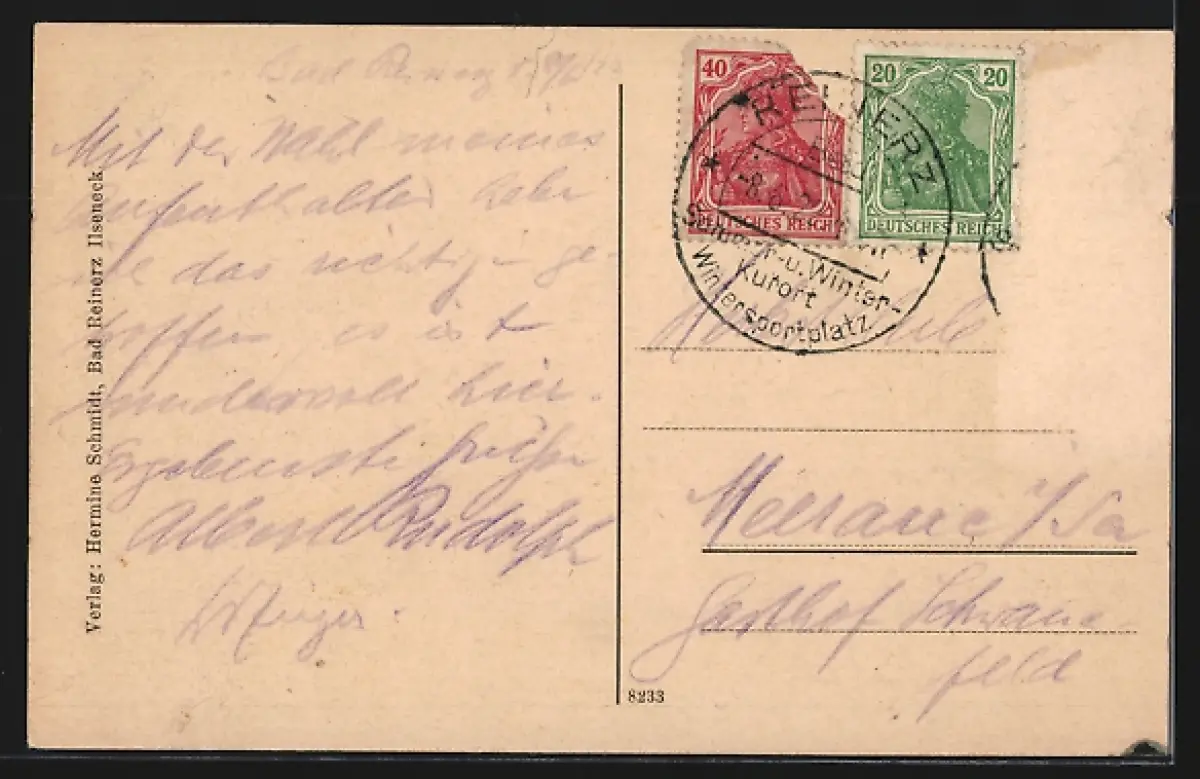 Bad Reinerz
Mit der Wahl meines
Aufenthaltes habe
ich das richtige ge-
troffen es ist
wundervoll hier.
Ergebenste Grüße
Albert Rudolph
Verlag: Hermine Schmidt, Bad Reinerz Ilseneck
40
DEUTSCHES REICH
20 20
DEUTSCHES REICH
REINERZ
-8.
Sommer-u. Winter-
Kurort
Wintersportplatz
Meerane i/Sa
Gasthof Schwane-
feld
8233